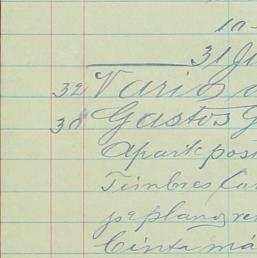 10-
31 Ju
32 Varios a
38 Gastos G
Apart post
Timbres Car
pa planos re
Cinta má